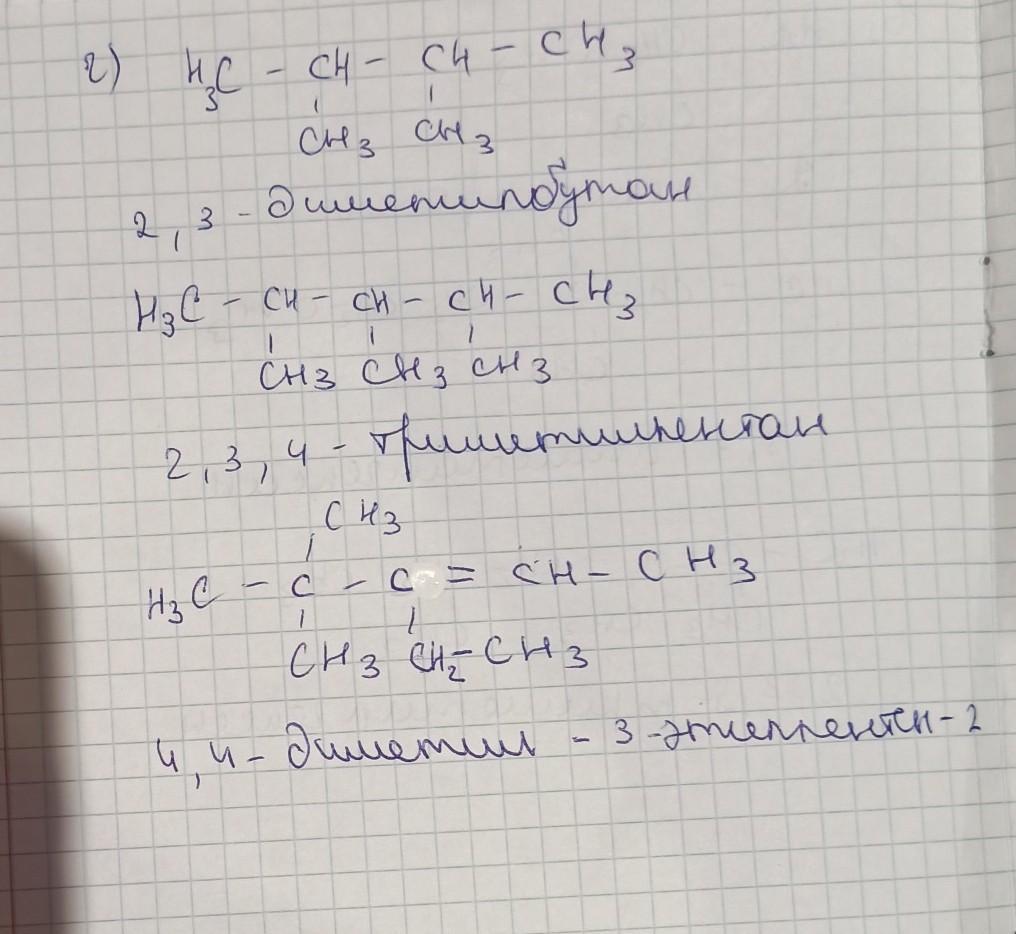 г) H₃C - CH - CH - CH₃
CH₃ CH₃
2,3 - диметилбутан
H₃C - CH - CH - CH - CH₃
CH₃ CH₃ CH₃
2,3,4 - триметилпентан
CH₃
H₃C - C - C = CH - CH₃
CH₃ CH₂-CH₃
4,4 - диметил - 3 -этилпентен-2